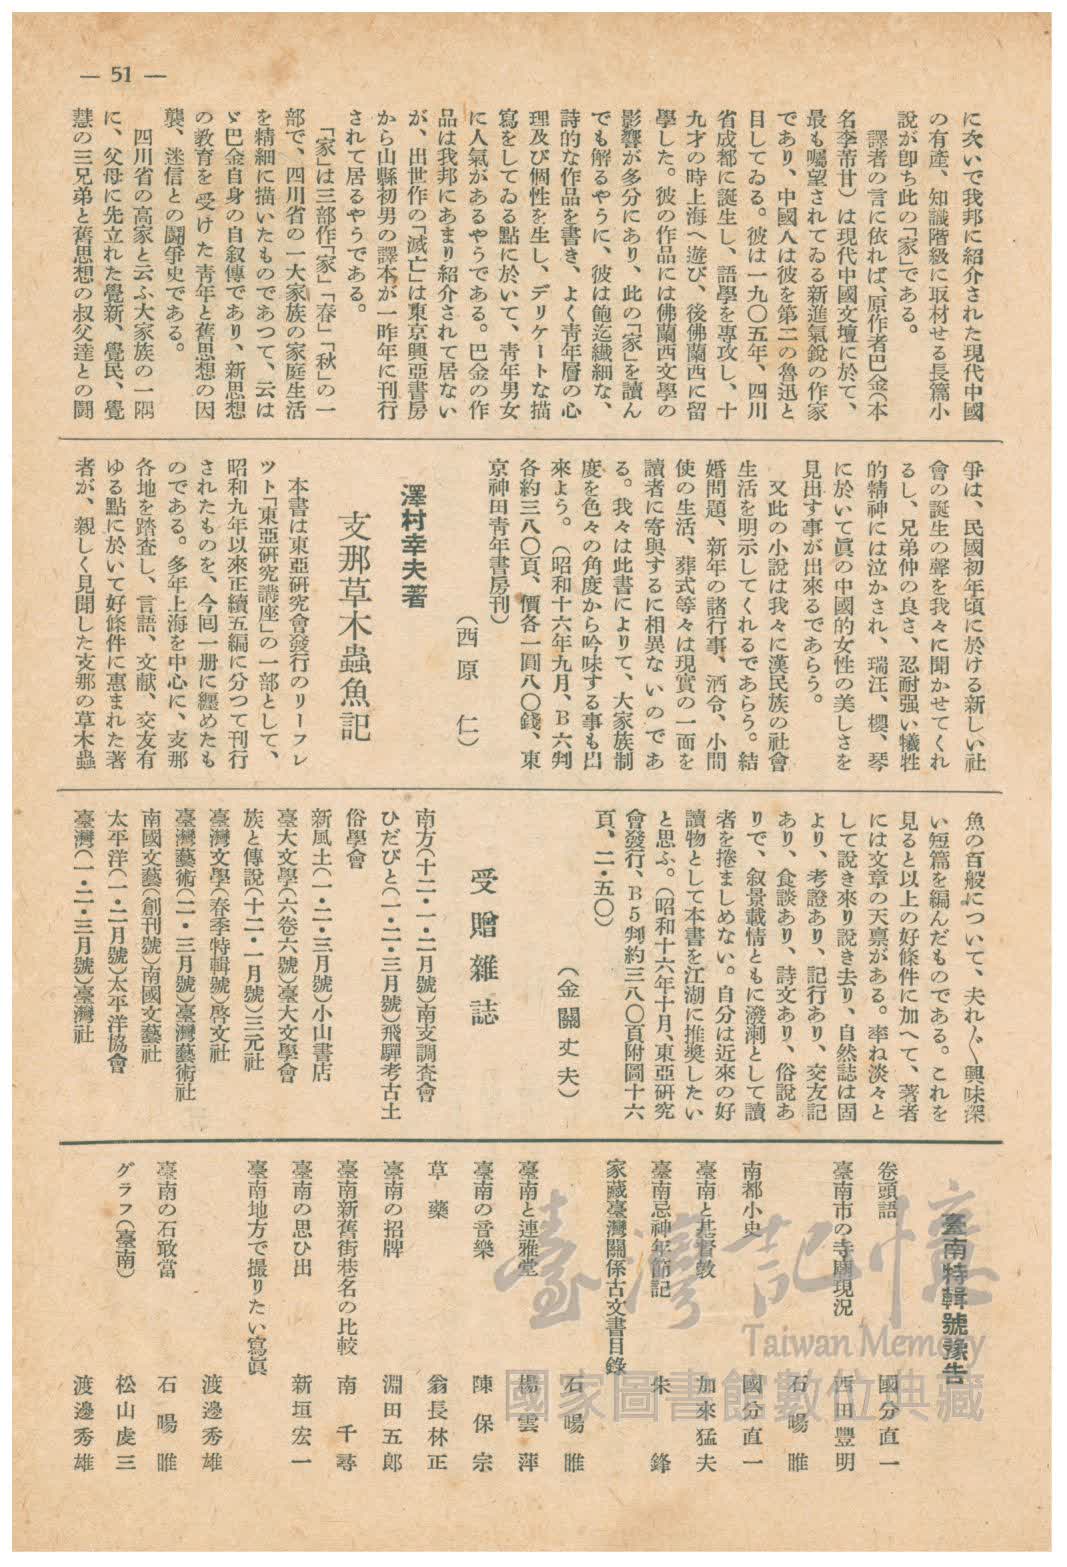 — 51 —
に次いで我邦に紹介された現代中國
の有產、知識階級に取材せる長篇小
說が卽ち此の「家」である。
譯者の言に依れば、原作者巴金(本
名李芾甘)は現代中國文壇に於て、
最も囑望されてゐる新進氣銳の作家
であり、中國人は彼を第二の魯迅と
目してゐる。彼は一九〇五年、四川
省成都に誕生し、語學を專攻し、十
九才の時上海へ遊び、後佛蘭西に留
學した。彼の作品には佛蘭西文學の
影響が多分にあり、此の「家」を讀ん
でも解るやうに、彼は飽迄纖細な、
詩的な作品を書き、よく靑年層の心
理及び個性を生し、デリケートな描
寫をしてゐる點に於いて、靑年男女
に人氣があるやうである。巴金の作
品は我邦にあまり紹介されて居ない
が、出世作の「滅亡」は東京興亞書房
から山縣初男の譯本が一昨年に刊行
されて居るやうである。
「家」は三部作「家」「春」「秋」の一
部で、四川省の一大家族の家庭生活
を精細に描いたものであつて、云は
ゞ巴金自身の自叙傳であり、新思想
の教育を受けた靑年と舊思想の因
襲、迷信との鬪爭史である。
四川省の高家と云ふ大家族の一隅
に、父母に先立れた覺新、覺民、覺
慧の三兄弟と舊思想の叔父達との鬪
爭は、民國初年頃に於ける新しい社
會の誕生の聲を我々に聞かせてくれ
るし、兄弟仲の良さ、忍耐强い犧牲
的精神には泣かされ、瑞汪、櫻、琴
に於いて眞の中國的女性の美しさを
見出す事が出來るであらう。
又此の小說は我々に漢民族の社會
生活を明示してくれるであらう。結
婚問題、新年の諸行事、酒令、小間
使の生活、葬式等々は現實の一面を
讀者に寄與するに相異ないのであ
る。我々は此書によりて、大家族制
度を色々の角度から吟味する事も出
來よう。(昭和十六年九月、B六判
各約三八〇頁、價各一圓八〇錢、東
京神田靑年書房刊)
(西原 仁)
澤村幸夫著
支那草木蟲魚記
本書は東亞硏究會發行のリーフレ
ツト「東亞硏究講座」の一部として、
昭和九年以來正續五編に分つて刊行
されたものを、今囘一册に纒めたも
のである。多年上海を中心に、支那
各地を踏査し、言語、文献、交友有
ゆる點に於いて好條件に惠まれた著
者が、親しく見聞した支那の草木蟲
魚の百般について、夫れ〲興味深
い短篇を編んだものである。これを
見ると以上の好條件に加へて、著者
には文章の天禀がある。率ね淡々と
して說き來り說き去り、自然誌は固
より、考證あり、記行あり、交友記
あり、食談あり、詩文あり、俗說あ
りで、叙景載情ともに潑溂として讀
者を捲ましめない。自分は近來の好
讀物として本書を江湖に推奬したい
と思ふ。(昭和十六年十月、東亞硏究
會發行、B5判約三八〇頁附圖十六
頁、二・五〇)
(金關丈夫)
受贈雜誌
南方(十二・一・二月號)南支調査會
ひだびと(一・二・三月號)飛驒考古土
俗學會
新風土(一・二・三月號)小山書店
臺大文學(六卷六號)臺大文學會
族と傳說(十二・一月號)三元社
臺灣文學(春季特輯號)啓文社
臺灣藝術(二・三月號)臺灣藝術社
南國文藝(創刊號)南國文藝社
太平洋(一・二月號)太平洋協會
臺灣(一・二・三月號)臺灣社
臺南特輯號豫告
卷頭語 國分直一
臺南市の寺廟現況 西田豐明
石暘睢
南都小史 國分直一
臺南と基督敎 加來猛夫
臺南忌神年節記 朱鋒
家藏臺灣關係古文書目錄
石暘睢
臺南と連雅堂 楊雲萍
臺南の音樂 陳保宗
草藥 翁長林正
臺南の招牌 淵田五郎
臺南新舊街巷名の比較 南千尋
臺南の思ひ出 新垣宏一
臺南地方で撮りたい寫眞
渡邊秀雄
臺南の石敢當 石暘睢
グラフ(臺南) 松山虔三
渡邊秀雄
臺灣記憶
Taiwan Memory
國家圖書館數位典藏